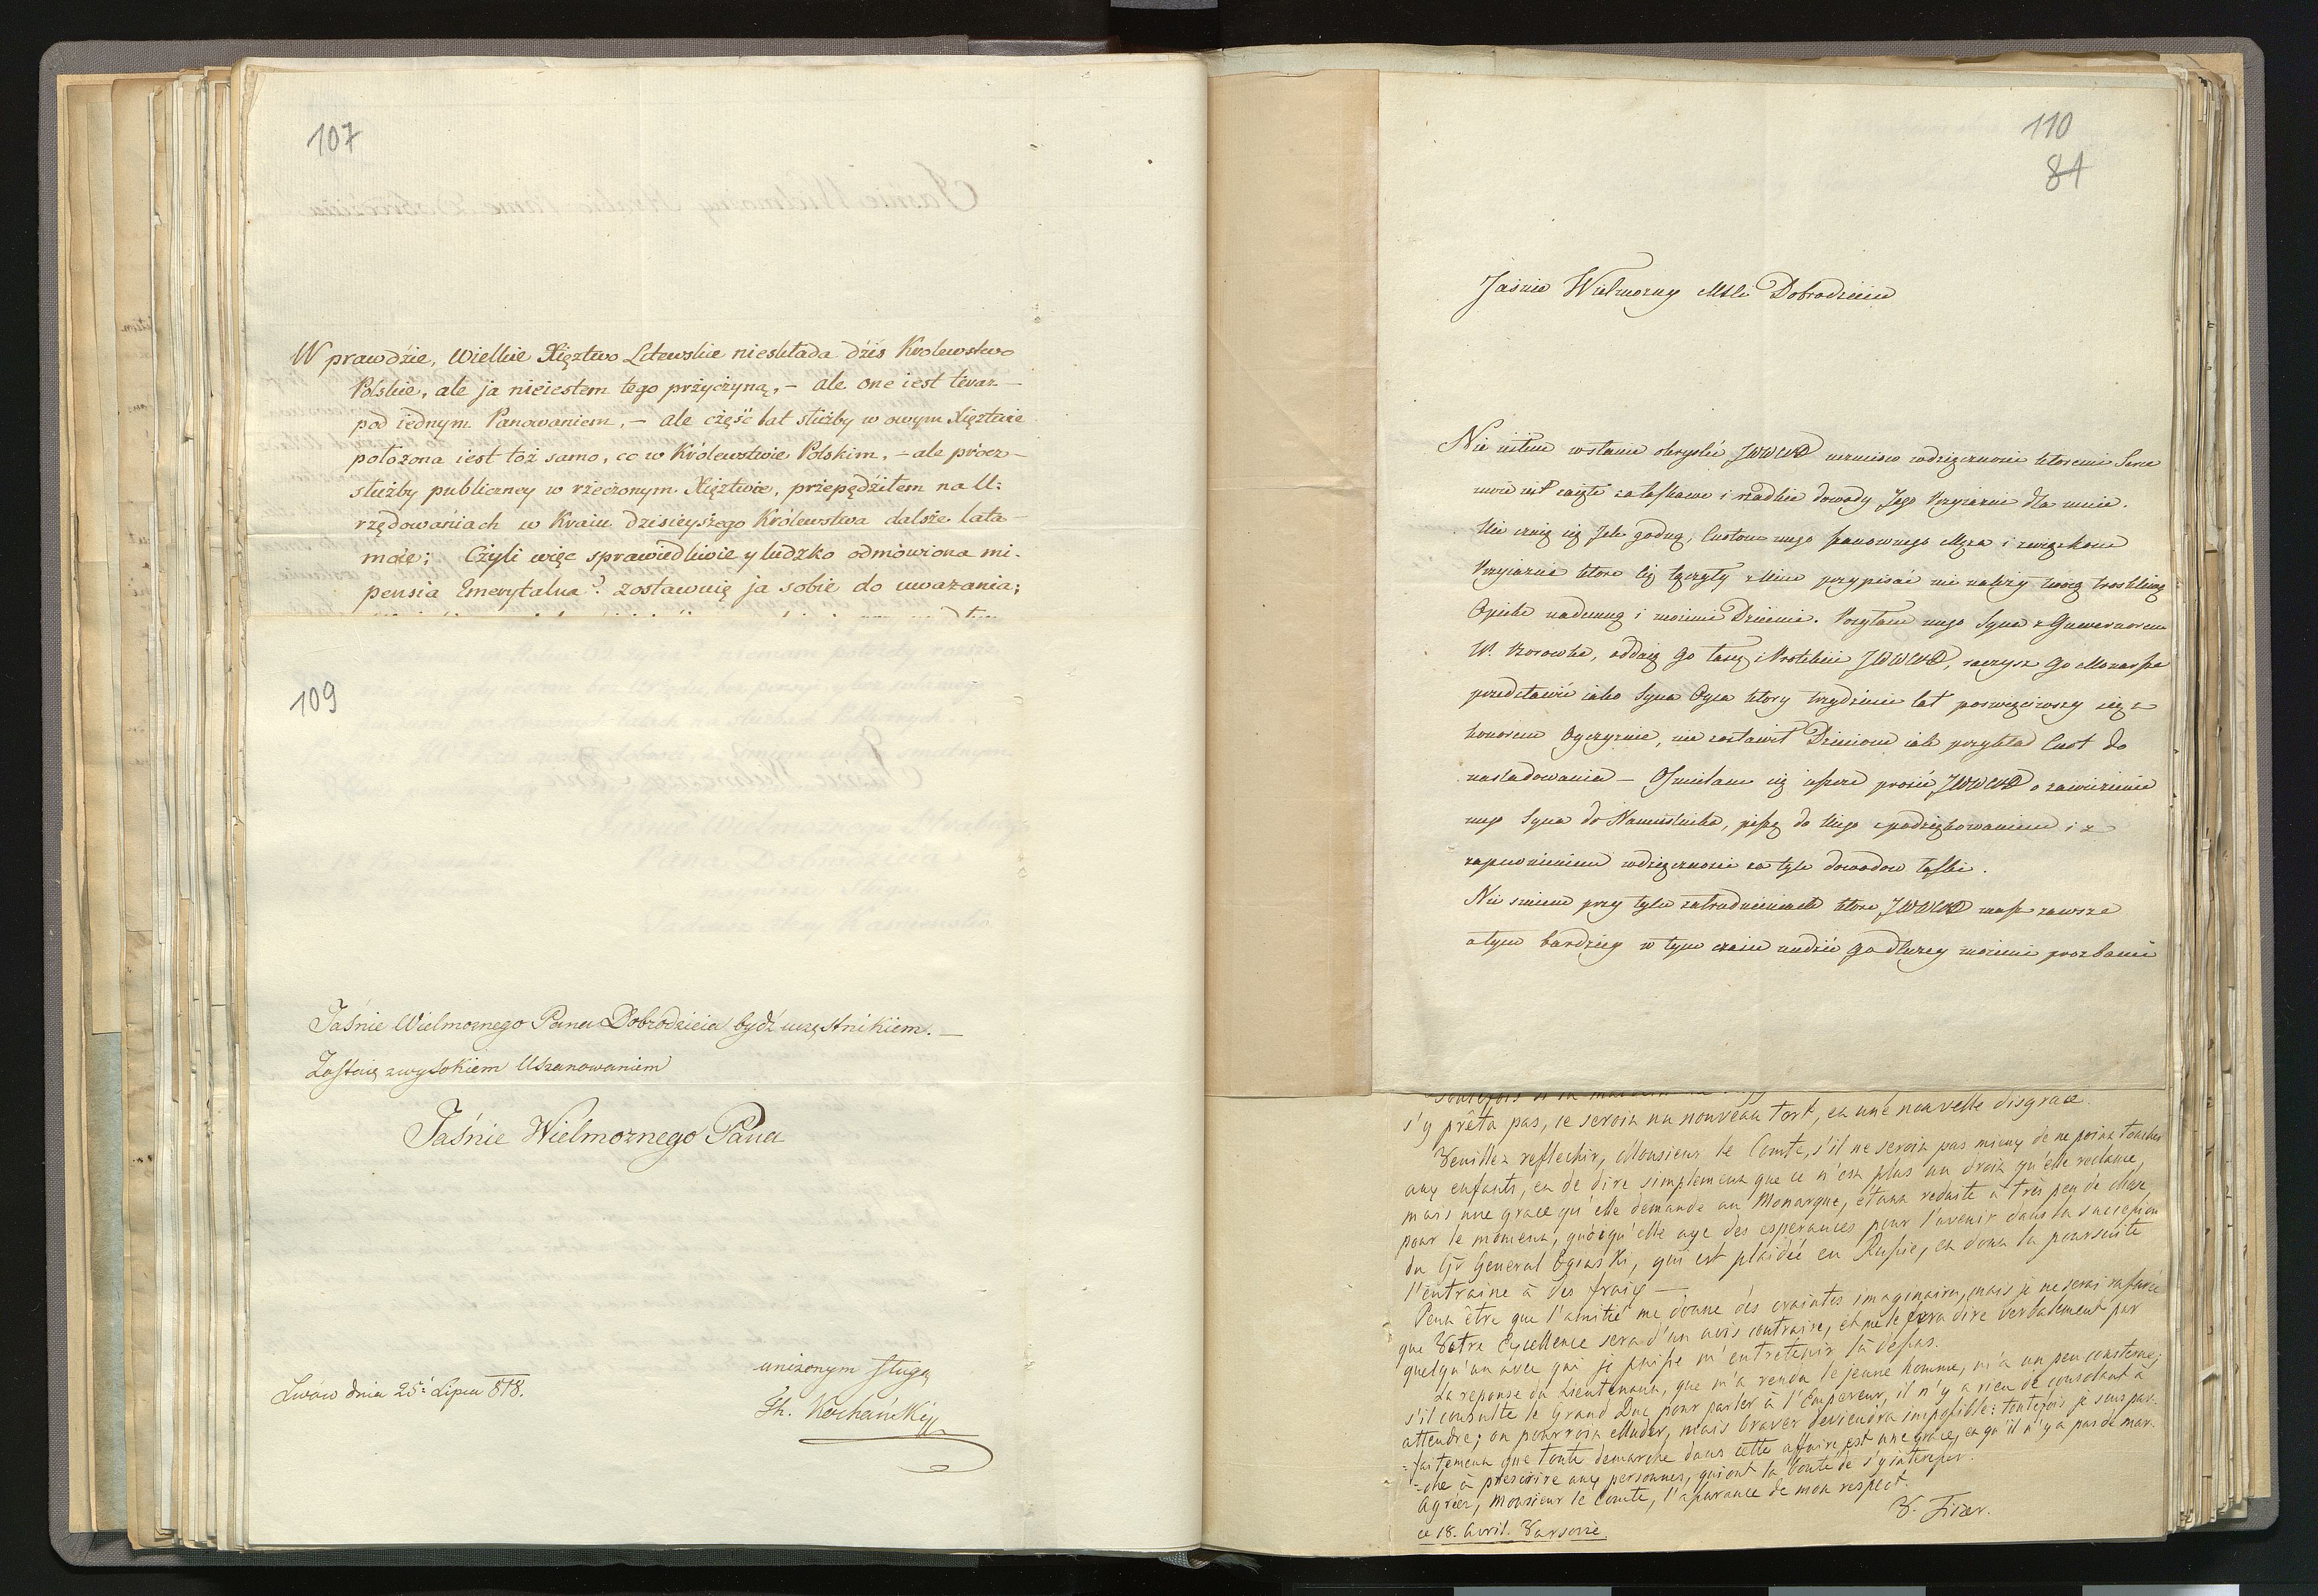 107
W prawdźie, Wielkie Xięztwo Litewskie nieskłada dźiś Krolewstwo
Polskie, ale ja nieiestem tego przyczyną, – ale one iest teraz –
pod iednym Panowaniem, – ale część lat służby w owym Xięztwie
położona iest toż samo, co w Królewstwie Polskim, – ale prócz –
służby publiczney w rzeczonym Xięztwie, przepędźiłem na U=
rzędowaniach w Kraiu dzisieyszego Królewstwa dalsze lata –
moie; Czyli więc sprawiedliwie y ludzko odmówiona mi.
pensia Emerytalna? zostawuię ja sobie do uwazania;
109
Jaśnie Wielmoznego Pana Dobrodzieia bydź uczęstnikiem. –
Zostaię z wysokiem Uszanowaniem
Jaśnie Wielmoznego Pana
unizonym sługą
Lwów dnia 25: Lipca 818.
Kochański
110
81
Jaśnie Wielmozny Mści Dobrodzieiu
Nie iestem wstanie okryslić JWWMD uczucia wdzięcznosci ktoremi Serce
moie iest zaięte za łaskawe i rzadkie dowody Jego Przyiazni dla mnie.
Nie czuię się Jch godną, Cnotom mego szanownego Męza i związkom
Przyiazni ktore Cię łączyły z Nim przypisać mi nalezy twoią troskliwą
Opiekę nademną i moiemi Dziećmi. Posyłam mego Syna z Guwernorem
W. , oddaię go łasce i Protekcii JWWMD, raczysz go Monarsze
przedstawić iako Syna Oyca ktory trzydziesci lat poswięciwszy się z
honorem Oyczyznie, nie zostawił Dzieciom iak przykład Cnot do
nasladowania – Osmielam się ieszcze prosić JWWMD o zawiezienie
mego Syna do Namiestnika, piszę do Niego z podziękowaniem i z
zapewnieniem wdzięcznosci za tyle dowodow łaski.
Nie smiem przy tylu zatrudnieniach ktore JWWMD masz zawsze
a tym bardziey w tym czasie nudzić go dłuzey moiemi prozbami
s'y prêta pas, ce seroit un nouveau tort, et une nouvelle disgrace.
Veuillez reflechir, Monsieur le Comte, s'il ne seroit pas mieux de ne point toucher
aux enfants, et de dire simplement que ce n'est plus un droit qu'elle reclame,
mais une grace qu'elle demande au Monarque, étant reduite à très peu de chose
pour le moment, quoiqu'elle aye des esperances pour l'avenir dans la succession
du Gr General Oginski, qui est plaidée en Russie, et dont la poursuite
l'entraine à des frais –
Peut être que l'amitié me donne des craintes imaginaires, mais je ne serai rassurée
que Votre Excellence sera d'un avis contraire, et me le fera dire verbalement par
quelqu'un avec qui je puisse m'entretenir là dessus.
La reponse du Lieutenant, que m'a rendu le jeune homme, m'a un peu consterné;
s'il consulte le Grand Duc pour parler à l'Empereur, il n'y a rien de consolant à
attendre; on pourroit eluder, mais braver deviendra impossible: toutefois je sens par=
=faitement que toute demarche dans cette affaire, est une grace, et qu'il n'y a pas de mar=
=che à prescrire aux personnes, qui ont la bonté de s'y interesser.
Agréez, Monsieur le Comte, l'assurance de mon respect.
ce 18. Avril. Varsovie.